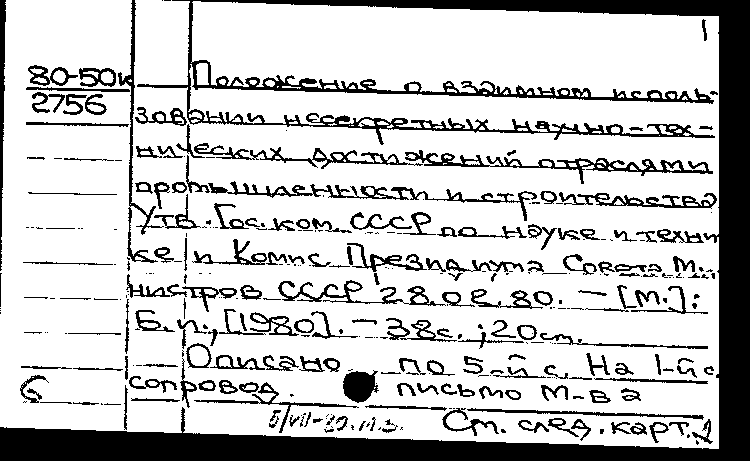 1
80-50к
2756
Положение о взаимном исполь-
зовании несекретных научно-тех-
нических достижений отраслями
промышленности и строительства
Утв. Гос. ком. СССР по науке и техни
ке и Комис. Президиума Совета Ми-
нистров СССР 28.02.80. — [М.]:
Б.и., [1980]. — 38с.; 20см.
Описано по 5-й с. На 1-й с.
сопровод. письмо М-ва
6
См. след. карт. 2